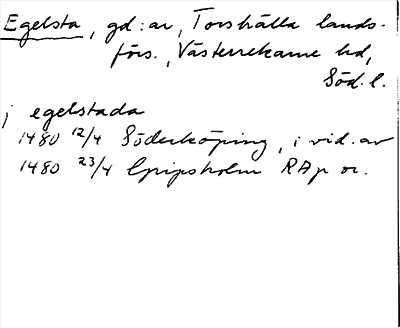 Egelsta, gd:ar, Torshälla lands-
förs., Västerrekarne hd,
Söd. l.
j egelstada
1480 12/4 Söderköping, i vid. av
1480 23/4 Gripsholm RAp or.